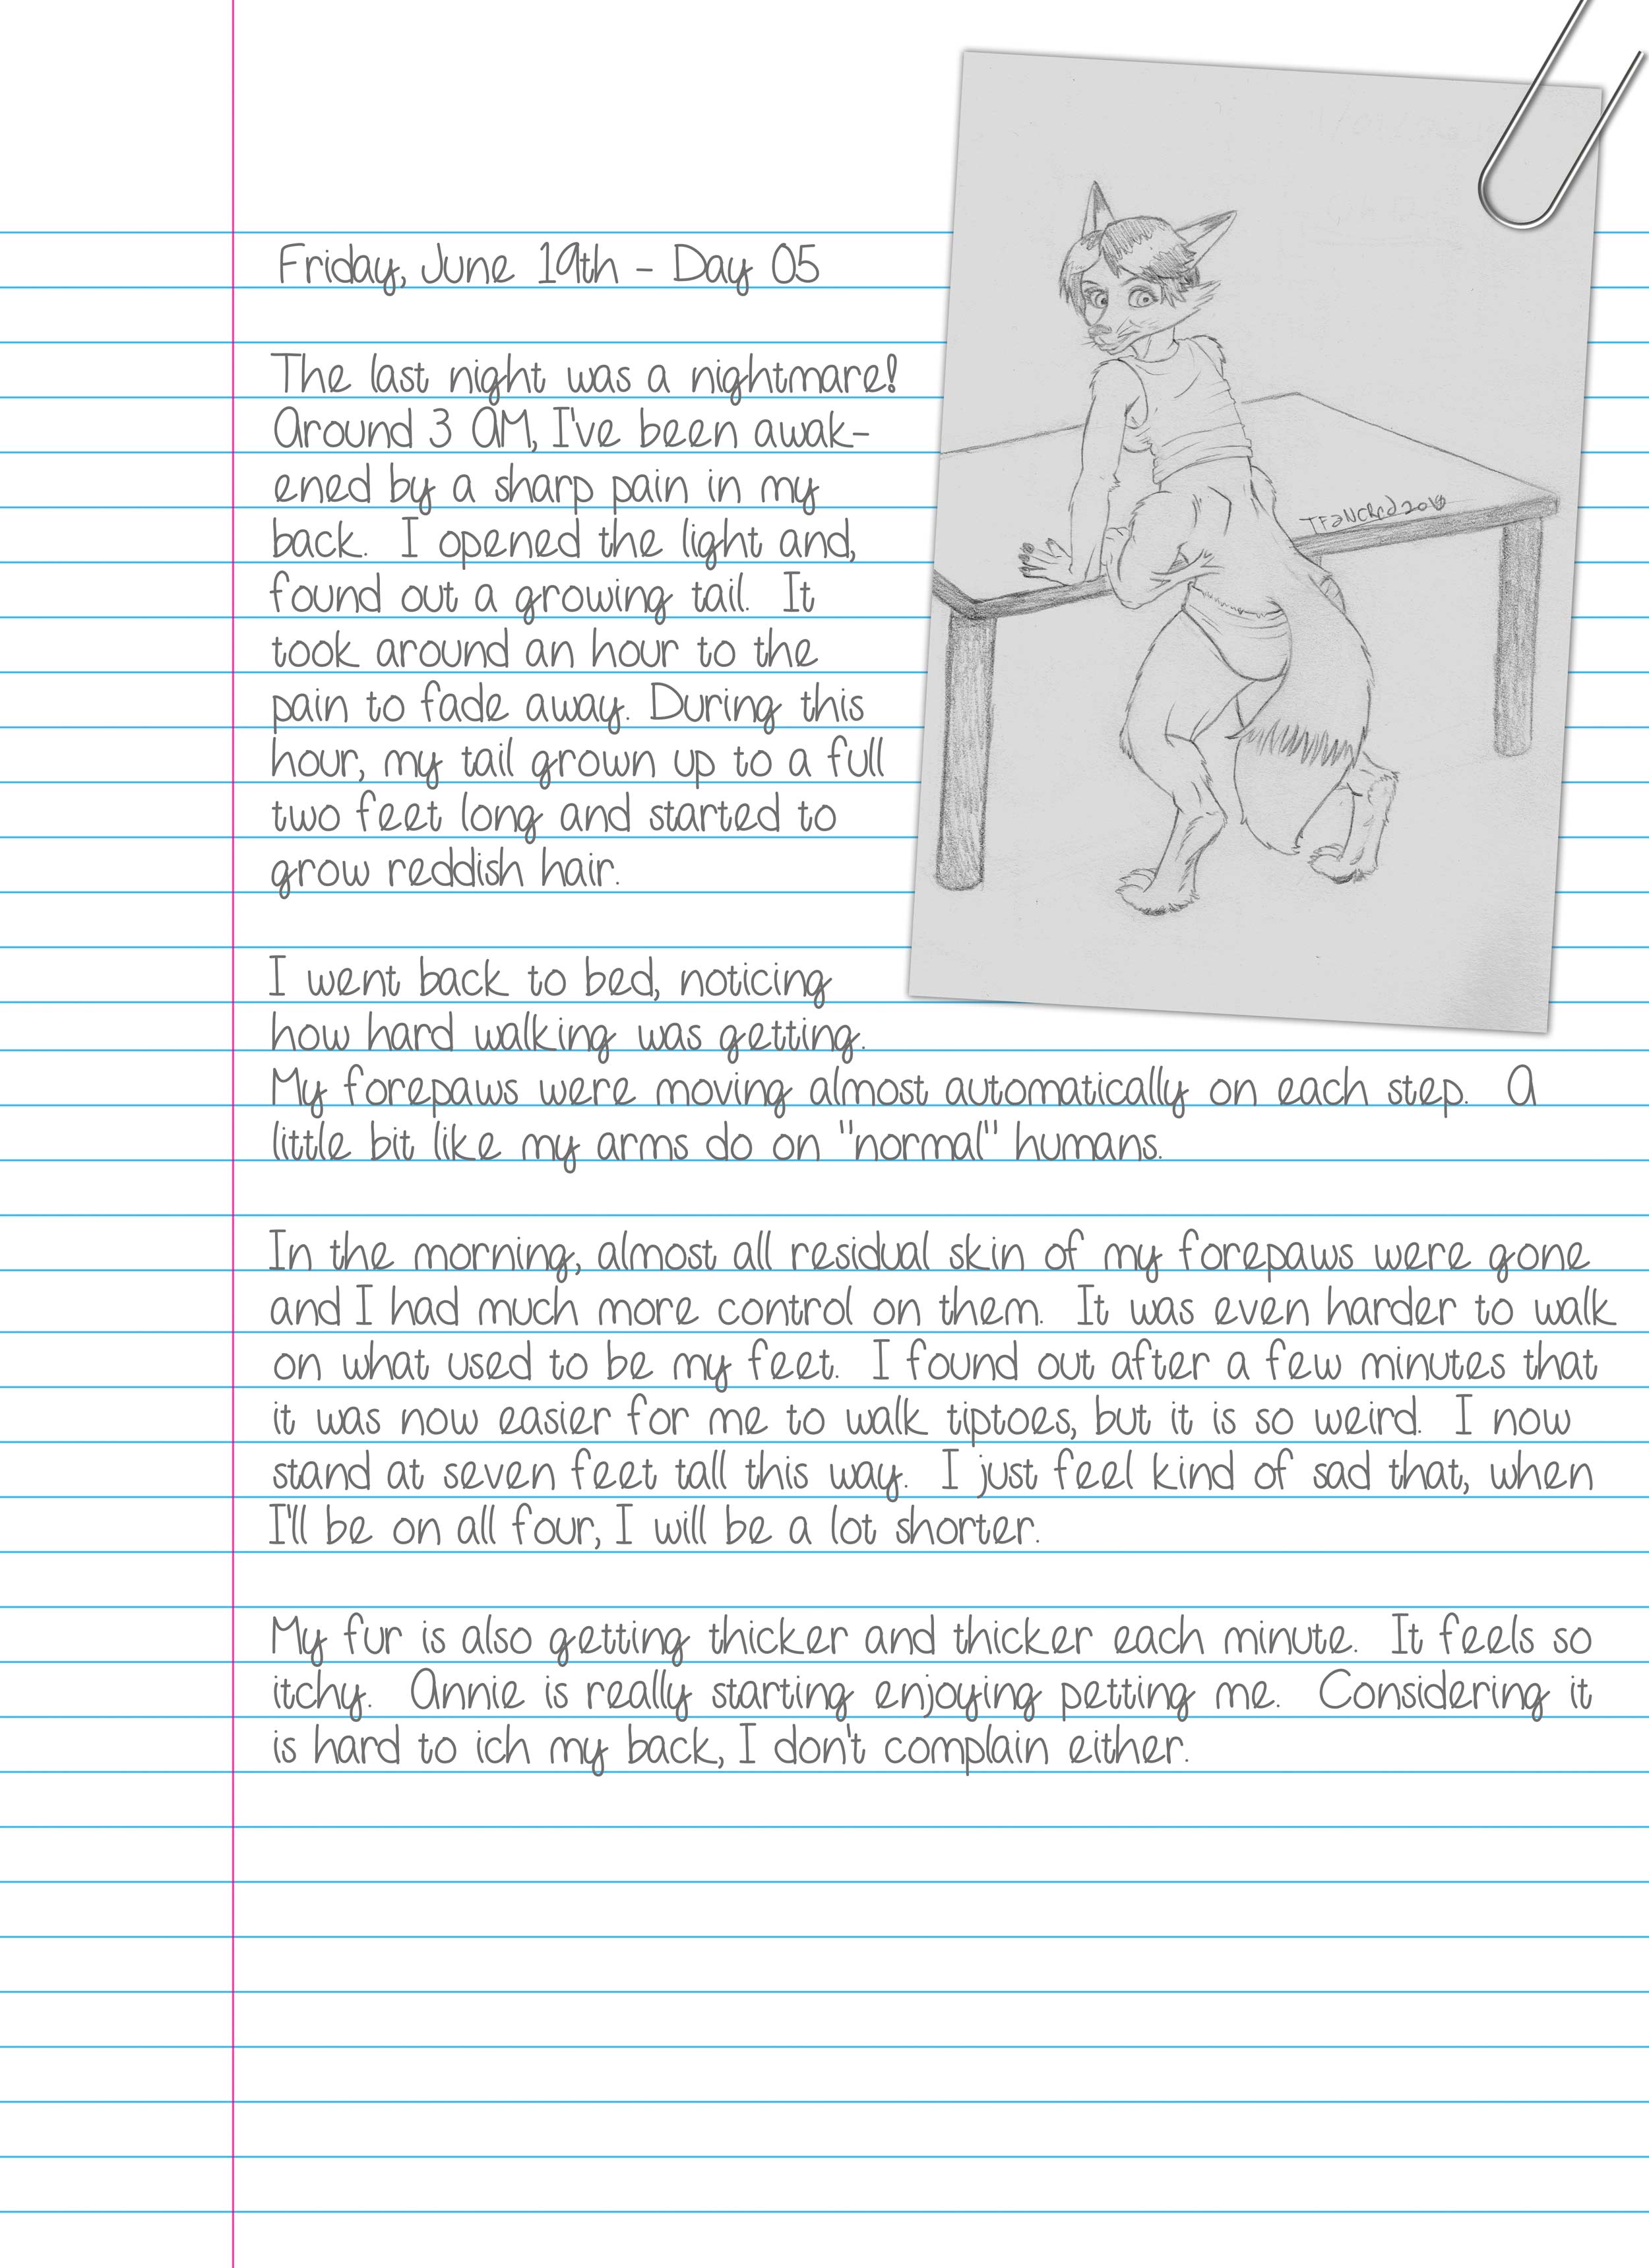 Friday, June 19th - Day 05
The last night was a nightmare!
Around 3 AM, I've been awak-
ened by a sharp pain in my
back. I opened the light and,
found out a growing tail. It
took around an hour to the
pain to fade away. During this
hour, my tail grown up to a full
two feet long and started to
grow reddish hair.
I went back to bed, noticing
how hard walking was getting.
My forepaws were moving almost automatically on each step. A
little bit like my arms do on "normal" humans.
In the morning, almost all residual skin of my forepaws were gone
and I had much more control on them. It was even harder to walk
on what used to be my feet. I found out after a few minutes that
it was now easier for me to walk tiptoes, but it is so weird. I now
stand at seven feet tall this way. I just feel kind of sad that, when
I'll be on all four, I will be a lot shorter.
My fur is also getting thicker and thicker each minute. It feels so
itchy. Annie is really starting enjoying petting me. Considering it
is hard to ich my back, I don't complain either.